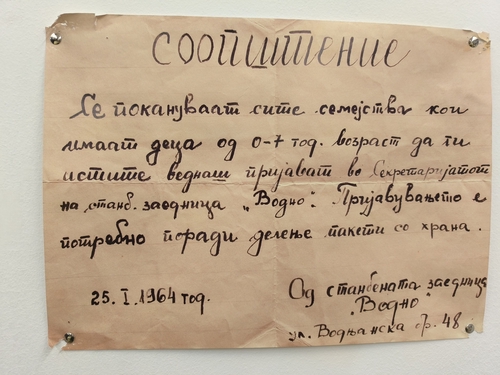 СООПШТЕНИЕ
Се покануваат сите семејства кои
имаат деца од 0-7 год. возраст да ги
истите веднаш пријават во Секретаријатот
на станб. заедница „Водно". Пријавувањето е
потребно поради делење пакети со храна.
25. I. 1964 год.
Од станбената заедница
„Водно"
ул. Водњанска бр. 48